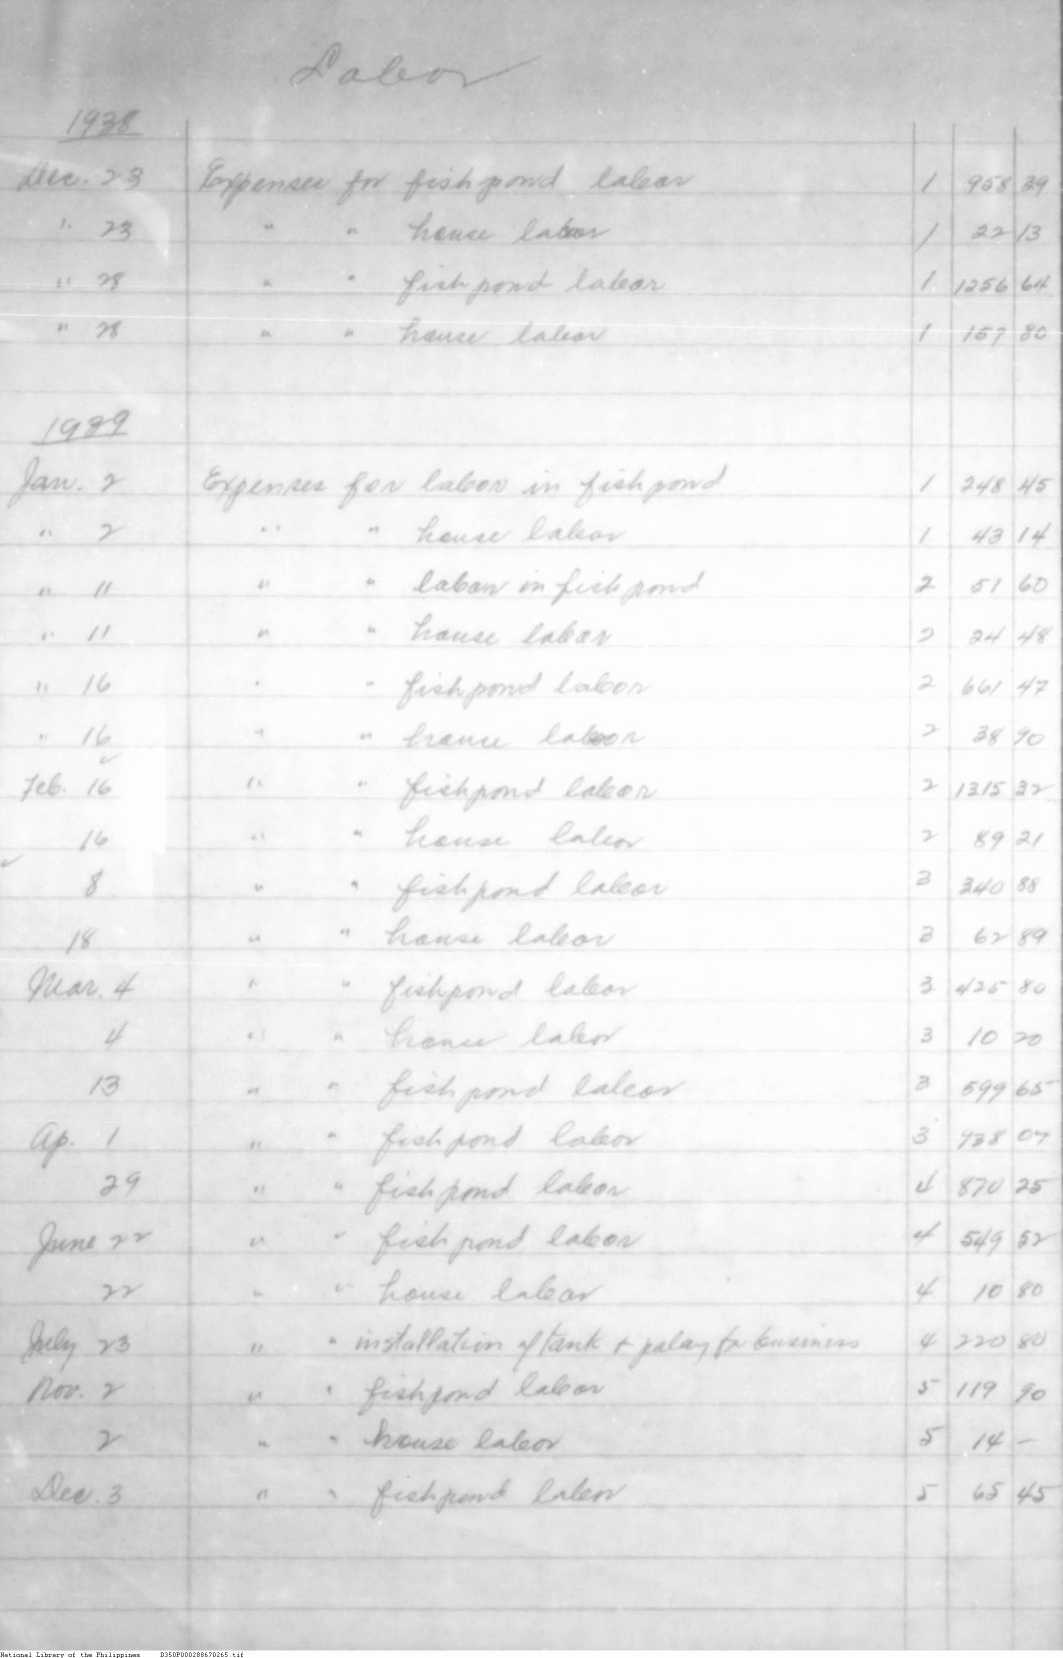 Labor
1938
Dec. 23 Expenses for fishpond labor 1 958 39
" 23 " " house labor 1 22 13
" 28 " " fishpond labor 1 1256 64
" 28 " " house labor 1 157 80
1939
Jan. 2 Expenses for labor in fishpond 1 248 45
" 2 " " house labor 1 43 14
" 11 " " labor in fishpond 2 51 60
" 11 " " house labor 2 24 48
" 16 " " fishpond labor 2 661 47
" 16 " " house labor 2 38 90
Feb. 16 " " fishpond labor 2 1315 32
16 " " house labor 2 89 21
8 " " fishpond labor 3 340 88
18 " " house labor 3 62 89
Mar. 4 " " fishpond labor 3 425 80
4 " " house labor 3 10 20
13 " " fishpond labor 3 599 65
Ap. 1 " " fishpond labor 3 938 07
29 " " fishpond labor 4 870 25
June 22 " " fishpond labor 4 549 52
22 " " house labor 4 10 80
July 23 " " installation of tank + palay for business 4 220 80
Nov. 2 " " fishpond labor 5 119 90
2 " " house labor 5 14 –
Dec. 3 " " fishpond labor 5 65 45
National Library of the Philippines D350P000288670265.tif